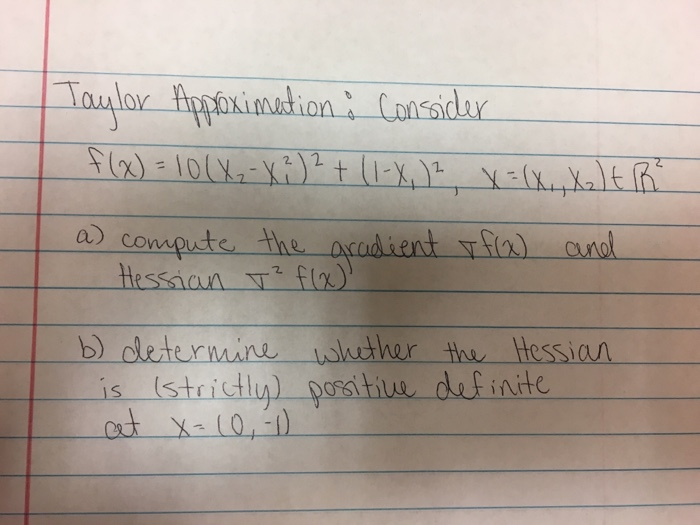 Taylor Approximation: Consider
f(x) = 10(x₂-x₁²)² + (1-x₁)², x=(x₁,x₂)∈ℝ²
a) compute the gradient ∇f(x) and
Hessian ∇² f(x)
b) determine whether the Hessian
is (strictly) positive definite
at x=(0,-1)